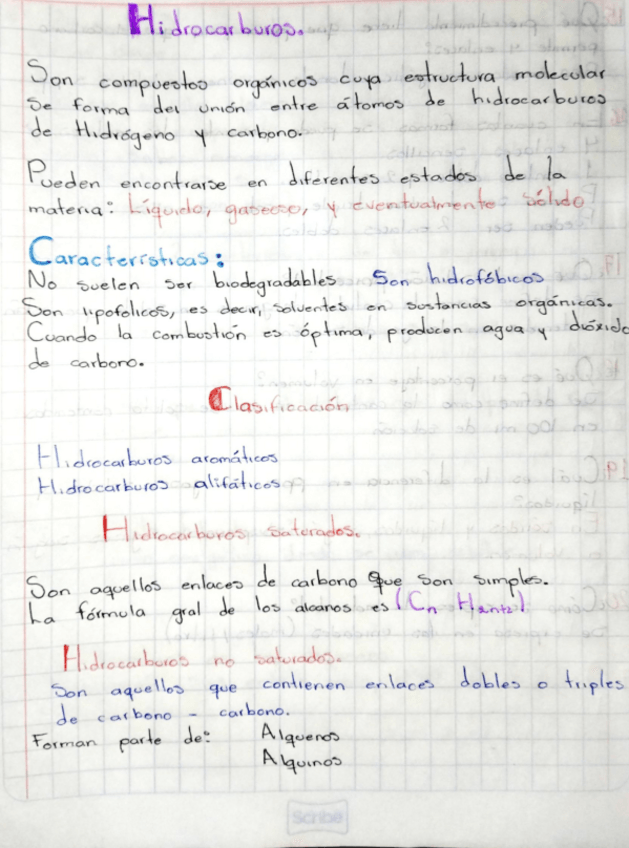 Hidrocarburos.
Son compuestos orgánicos cuya estructura molecular
se forma del unión entre átomos de hidrocarburos
de Hidrógeno y carbono.
Pueden encontrarse en diferentes estados de la
materia: Líquido, gaseoso, y eventualmente sólido
Características:
No suelen ser biodegradables Son hidrofóbicos
Son lipofolicos, es decir, solventes en sustancias orgánicas.
Cuando la combustión es óptima, producen agua y dióxido
de carbono.
Clasificación
Hidrocarburos aromáticos
Hidrocarburos alifáticos
Hidrocarburos saturados.
Son aquellos enlaces de carbono que son simples.
La fórmula gral de los alcanos es (Cn H2n+2)
Hidrocarburos no saturados.
Son aquellos que contienen enlaces dobles o triples
de carbono - carbono.
Forman parte de: Alquenos
Alquinos
Scribe